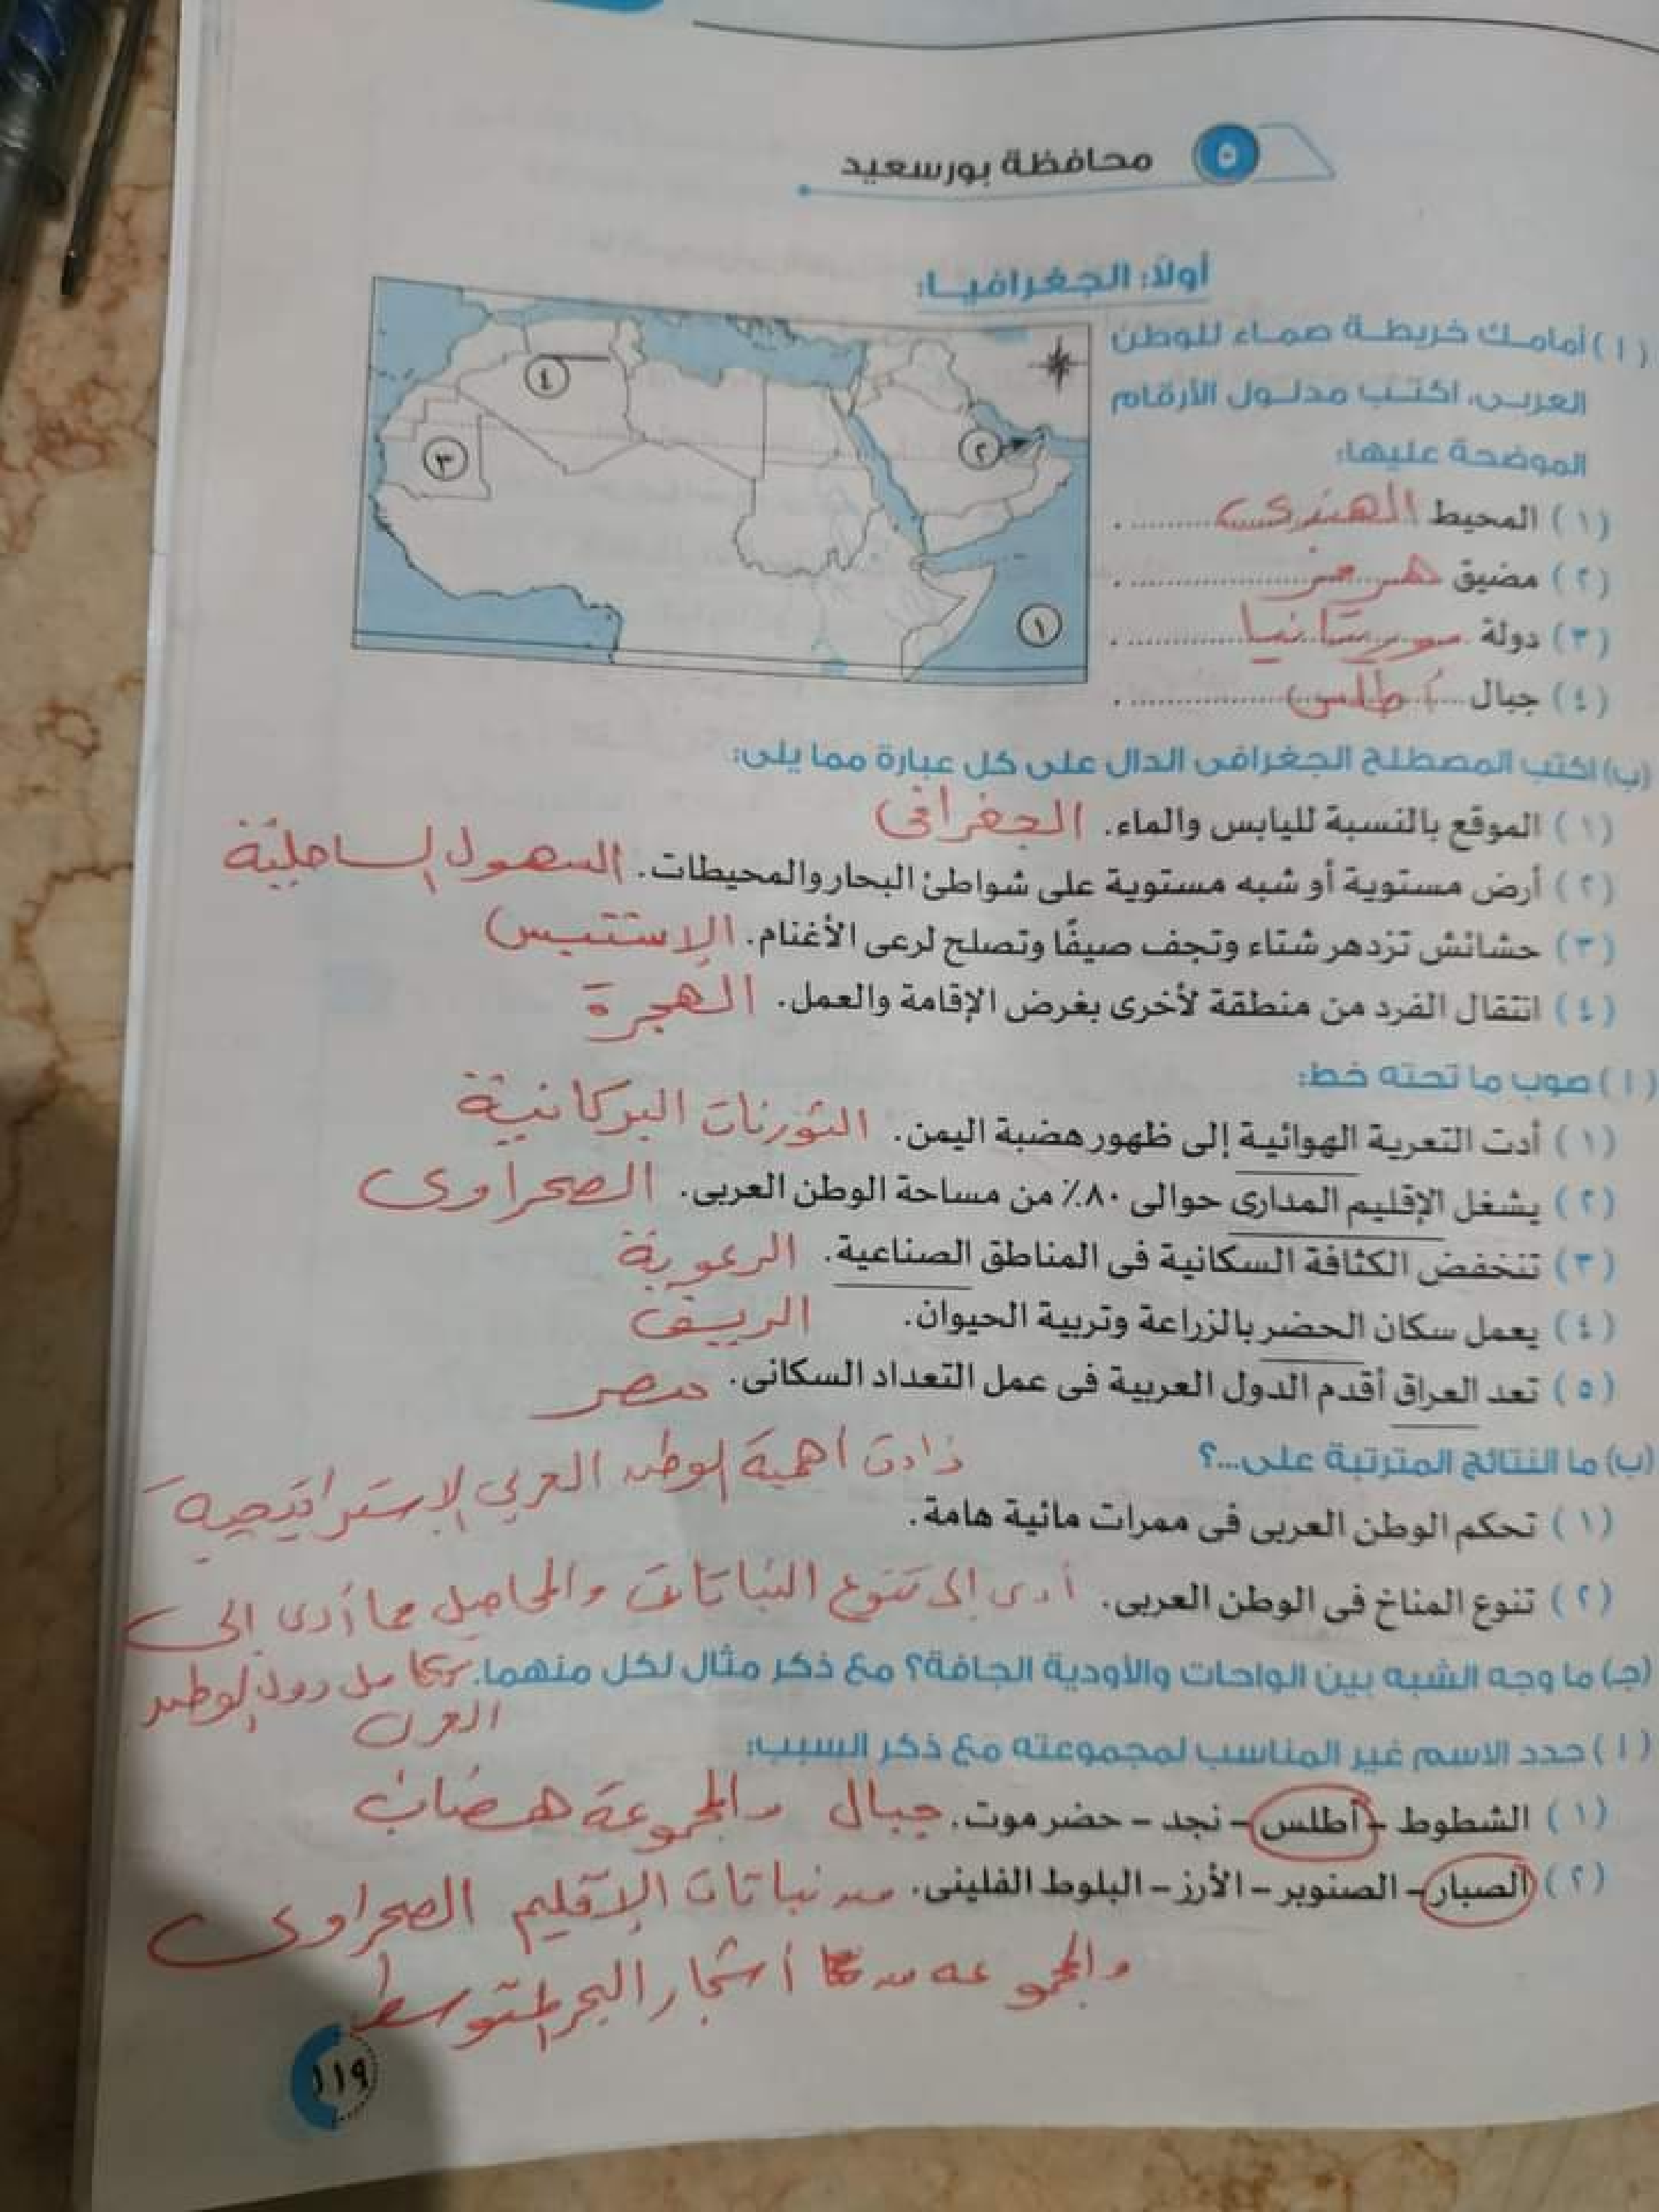 ٥ محافظة بورسعيد
أولاً: الجغرافيا:
(ا) أمامك خريطة صماء للوطن
العربى، اكتب مدلول الأرقام
الموضحة عليها:
٤
٣
٢
١
(١) المحيط الهندى .
(٢) مضيق هرمز .
(٣) دولة موريتانيا .
(٤) جبال أطلس .
(ب) اكتب المصطلح الجغرافى الدال على كل عبارة مما يلى:
(١) الموقع بالنسبة لليابس والماء. الجغرافى
(٢) أرض مستوية أو شبه مستوية على شواطئ البحار والمحيطات. السهول الساحلية
(٣) حشائش تزدهر شتاء وتجف صيفًا وتصلح لرعى الأغنام. الإستبس
(٤) انتقال الفرد من منطقة لأخرى بغرض الإقامة والعمل. الهجرة
(ا) صوب ما تحته خط:
(١) أدت التعرية الهوائية إلى ظهور هضبة اليمن. الثورنات البركانية
(٢) يشغل الإقليم المدارى حوالى ٨٠٪ من مساحة الوطن العربى. الصحراوى
(٣) تنخفض الكثافة السكانية فى المناطق الصناعية. الرعوية
(٤) يعمل سكان الحضر بالزراعة وتربية الحيوان. الريف
(٥) تعد العراق أقدم الدول العربية فى عمل التعداد السكانى. مصر
(ب) ما النتائج المترتبة على...؟ زادت أهمية الوطن العربي الاستراتيجية
(١) تحكم الوطن العربى فى ممرات مائية هامة.
(٢) تنوع المناخ فى الوطن العربى. أدى إلى تنوع النباتات والمحاصيل مما أدى إلى
(جـ) ما وجه الشبه بين الواحات والأودية الجافة؟ مع ذكر مثال لكل منهما. تكامل دول الوطن
العربى
(ا) حدد الاسم غير المناسب لمجموعته مع ذكر السبب:
(١) الشطوط - أطلس - نجد - حضرموت. جبال والمجموعة هضاب
(٢) الصبار - الصنوبر - الأرز - البلوط الفلينى. من نباتات الإقليم الصحراوى
والمجموعه من أشجار البحر المتوسط
١١٩